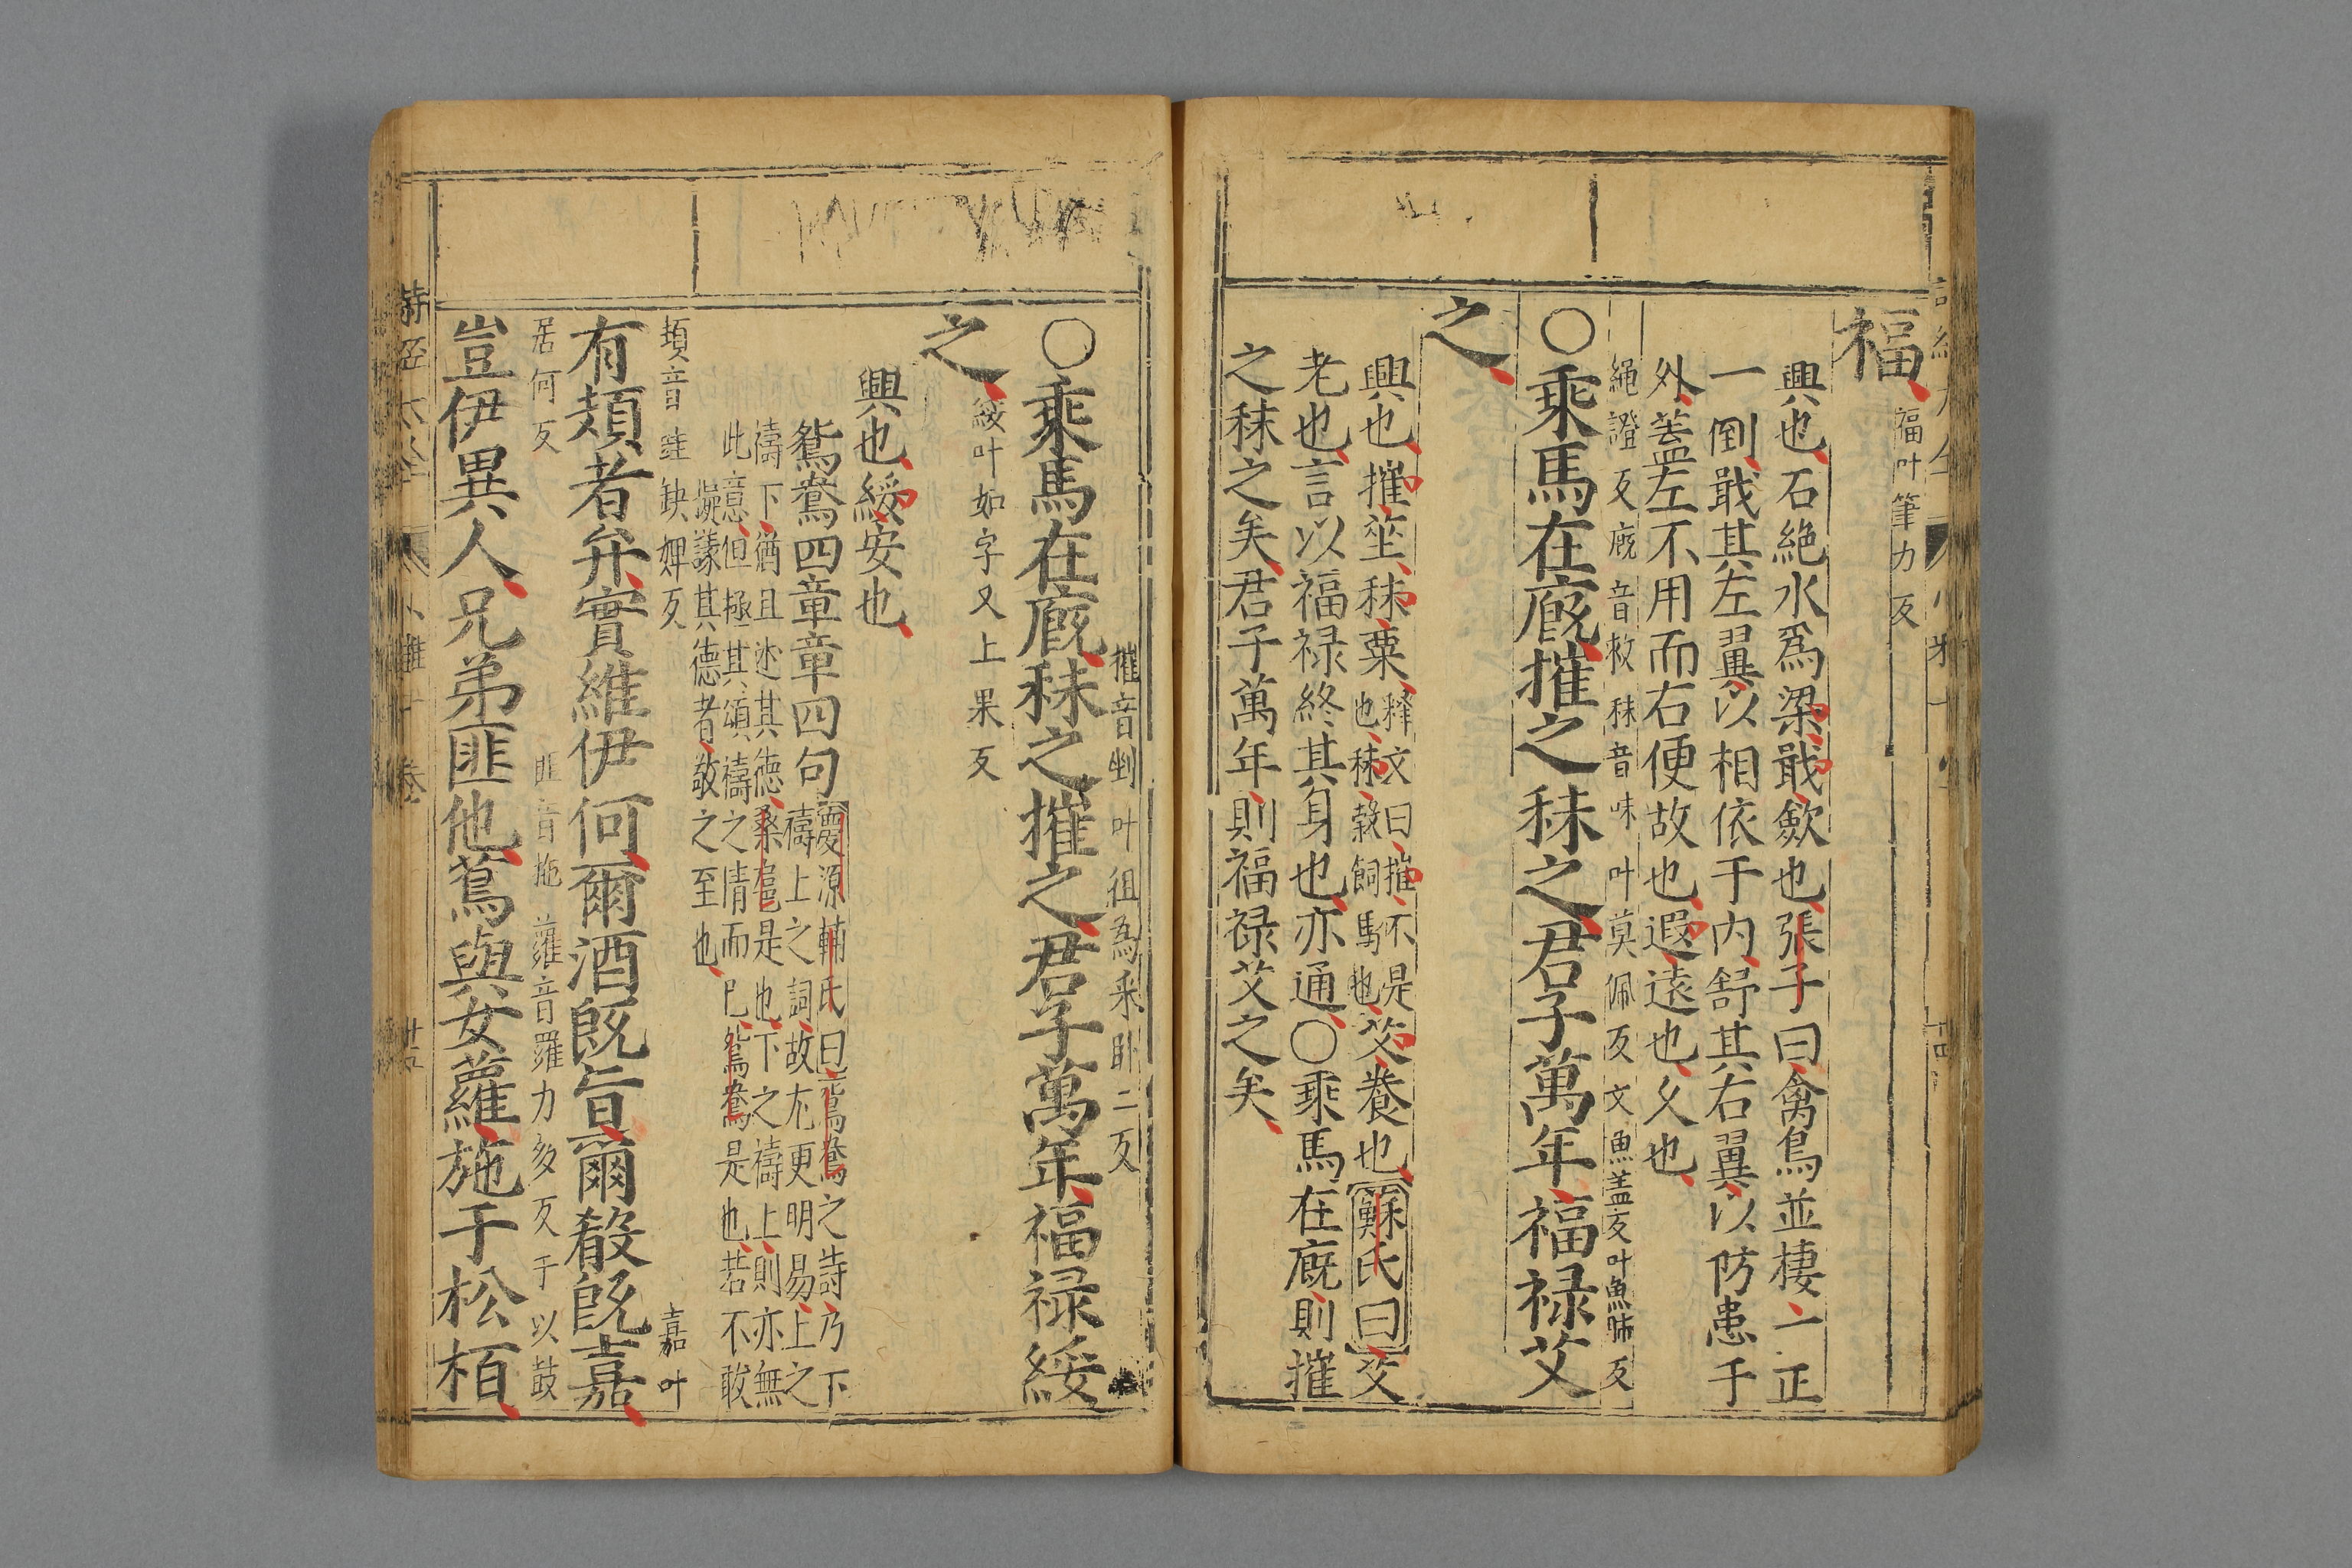 福
福叶筆力反
興也石絶水爲梁戢歛也張子曰禽鳥並棲一正
一倒戢其左翼以相依于内舒其右翼以防患于
外盖左不用而右便故也遐遠也乆也
繩證反廐音救秣音味叶莫佩反文魚盖反叶魚肺反
○乘馬在廐摧之秣之君子萬年福禄艾
之
興也摧莝秣粟
釋文曰摧不是
也秣榖飼馬也
艾養也蘇氏曰艾
老也言以福禄終其身也亦通○乘馬在廐則摧
之秣之矣君子萬年則福禄艾之矣
摧音剉叶徂為采卧二反
○乘馬在廐秣之摧之君子萬年福禄綏
之
綏叶如字又上果反
興也綏安也
鴛鴦四章章四句
慶源輔氏曰鴛鴦之詩乃下
禱上之詞故尤更明易上之
禱下猶且述其德桑扈是也下之禱上則亦無
此意但極其頌禱之情而已鴛鴦是也若不敢
擬議其德者敬之至也
頍音跬缺婢反
嘉叶
有頍者弁實維伊何爾酒旣旨爾殽旣嘉
居何反
匪音施蘿音羅力多反于以鼓
豈伊異人兄弟匪他蔦與女蘿施于松栢